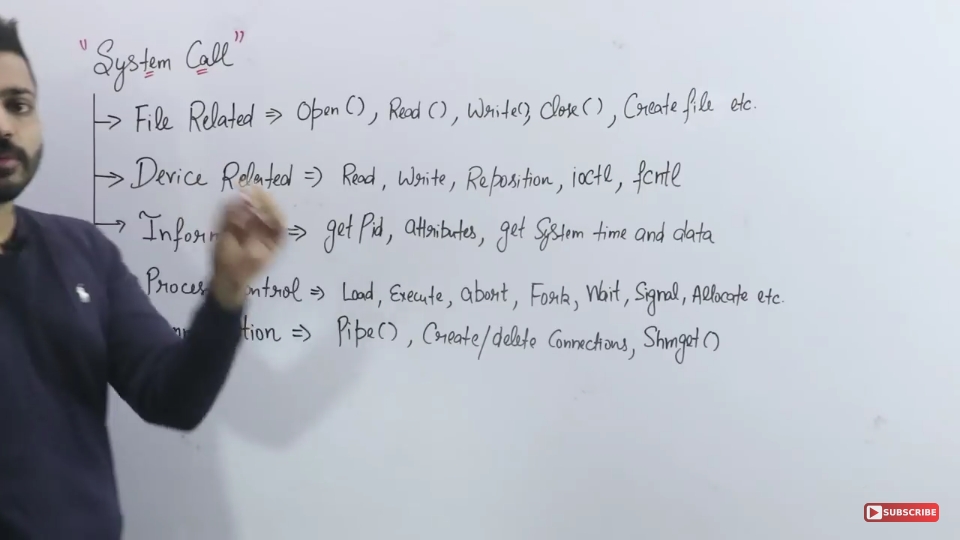 "System Call"
File Related ⇒ Open(), Read(), Write(), Close(), Create file etc.
Device Related ⇒ Read, Write, Reposition, ioctl, fcntl
⇒ get Pid, attributes, get System time and data
⇒ Load, Execute, abort, Fork, Wait, Signal, Allocate etc.
⇒ Pipe(), Create/delete Connections, Shmget()
SUBSCRIBE